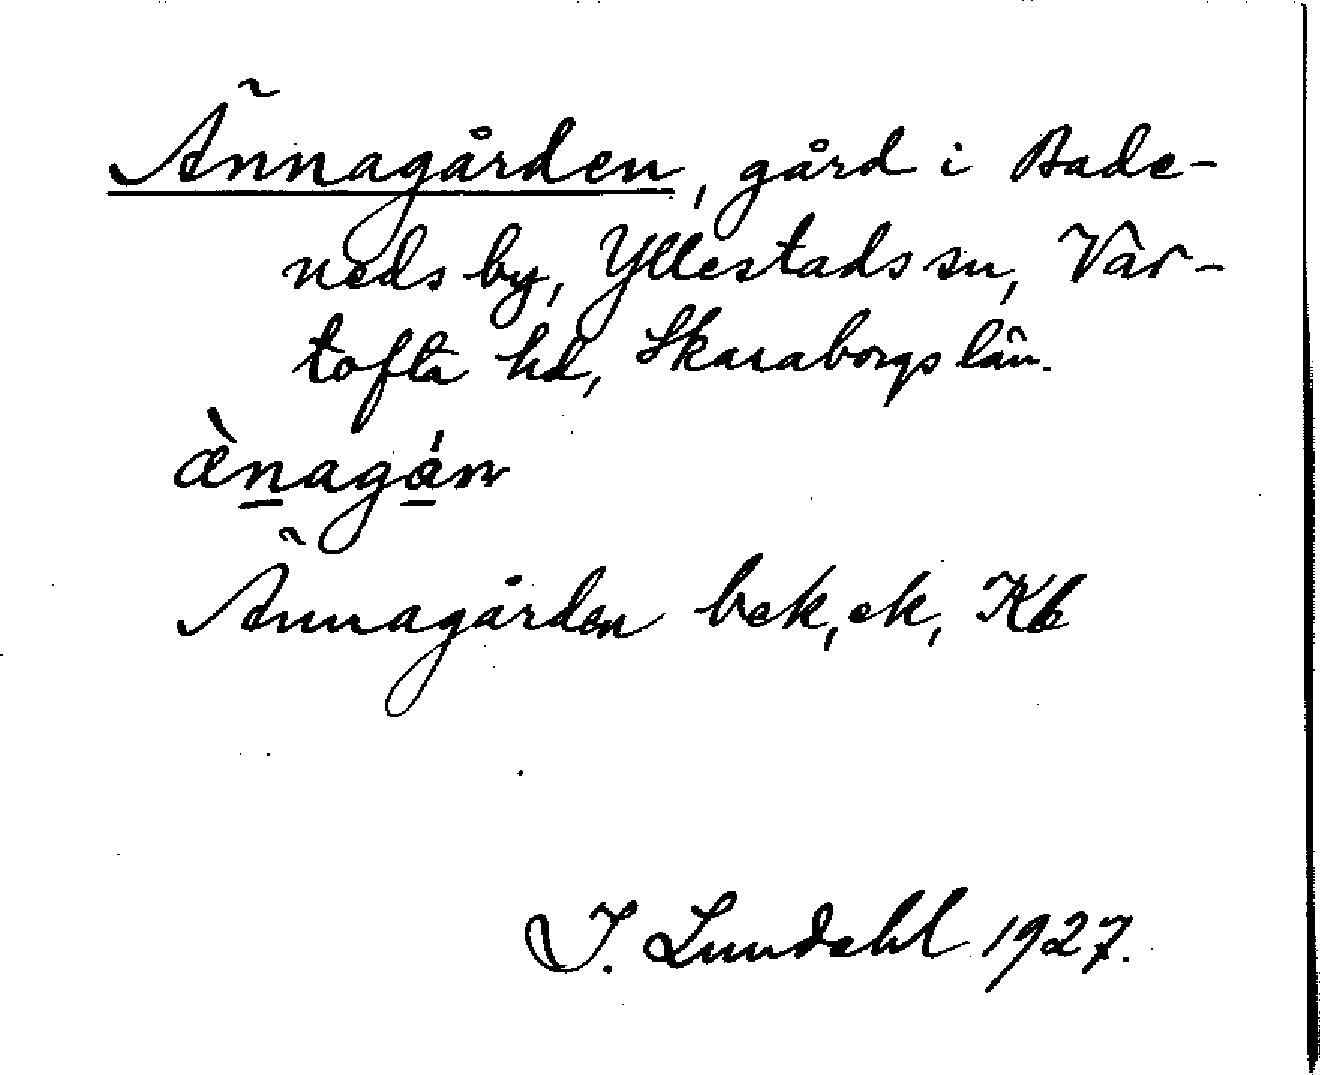 Ännagården, gård i Bade-
neds by, Yllestads sn, Var-
tofta hd, Skaraborgs län.
æ̀nagán
Ännagården bek, ek, Kb
I. Lundahl 1927.